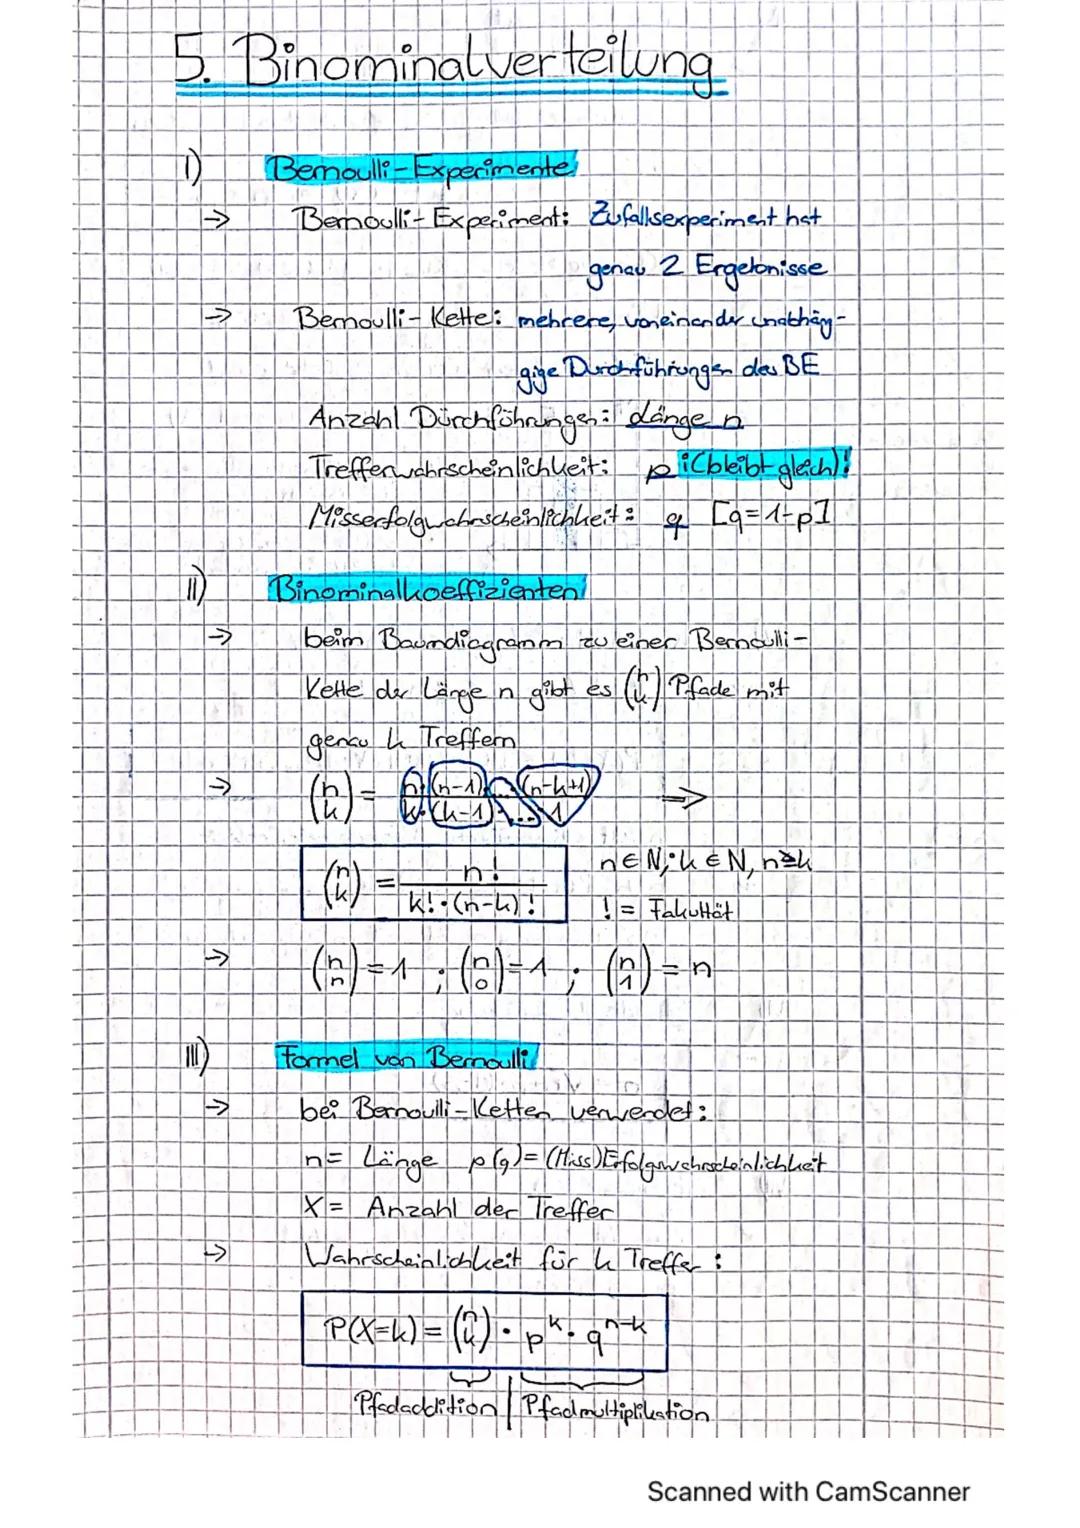 5. Binominalverteilung
I) Bernoulli-Experimente
→ Bernoulli-Experiment: Zufallsexperiment hat
genau 2 Ergebnisse
→ Bernoulli-Kette: mehrere, voneinander unabhäng-
gige Durchführungen des BE
Anzahl Durchführungen: Länge n
Trefferwahrscheinlichkeit: p ¡(bleibt gleich)!
Misserfolgwahrscheinlichkeit: q [q=1-p]
II) Binominalkoeffizienten
→ beim Baumdiagramm zu einer Bernoulli-
Kette der Länge n gibt es (n k) Pfade mit
genau k Treffern
→ (n k) = n·(n-1)·...·(n-k+1) / k·(k-1)·...·1 ⇒
(n k) = n! / k!·(n-k)! n∈N; k∈N, n≥k
! = Fakultät
→ (n n)=1 ; (n 0)=1 ; (n 1)=n
III) Formel von Bernoulli
→ bei Bernoulli-Ketten verwendet:
n= Länge p(q)= (Miss)Erfolgswahrscheinlichkeit
X= Anzahl der Treffer
→ Wahrscheinlichkeit für k Treffer:
P(X=k) = (n k) · p^k · q^n-k
Pfadaddition | Pfadmultiplikation
Scanned with CamScanner